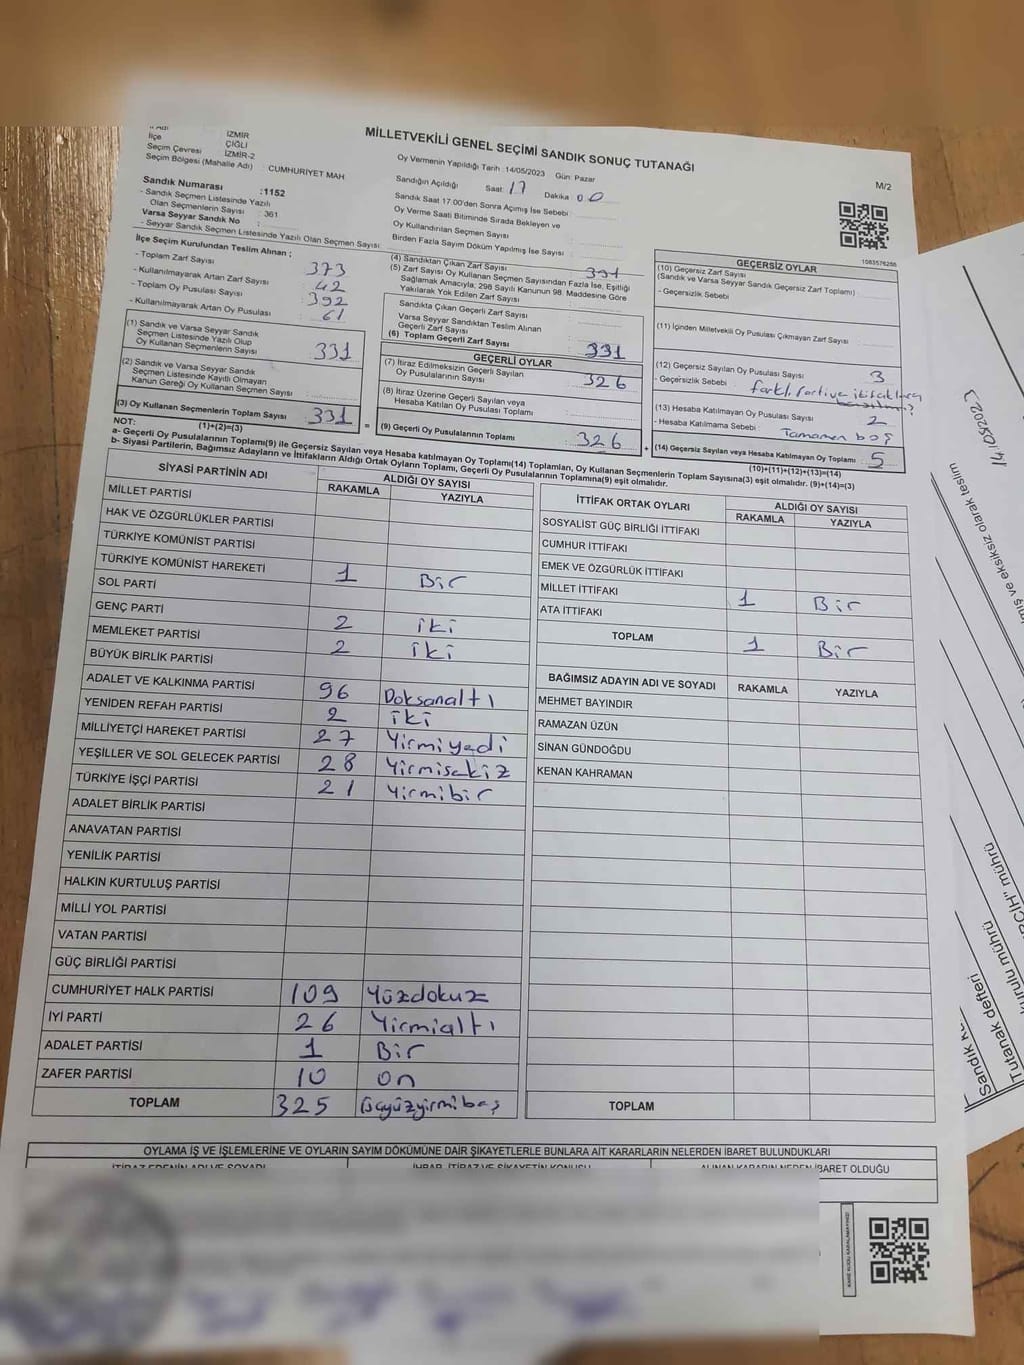 İli Adı İZMİR
İlçe ÇİĞLİ
Seçim Çevresi İZMİR-2
Seçim Bölgesi (Mahalle Adı) CUMHURIYET MAH
Sandık Numarası :1152
- Sandık Seçmen Listesinde Yazılı
Olan Seçmenlerin Sayısı : 361
Varsa Seyyar Sandık No :
- Seyyar Sandık Seçmen Listesinde Yazılı Olan Seçmen Sayısı:
MİLLETVEKİLİ GENEL SEÇİMİ SANDIK SONUÇ TUTANAĞI
M/2
Oy Vermenin Yapıldığı Tarih :14/05/2023 Gün: Pazar
Sandığın Açıldığı Saat: 17 Dakika 00
Sandık Saat 17.00'den Sonra Açılmış İse Sebebi :
Oy Verme Saati Bitiminde Sırada Bekleyen ve
Oy Kullandırılan Seçmen Sayısı :
Birden Fazla Sayım Döküm Yapılmış İse Sayısı :
1083576256
İlçe Seçim Kurulundan Teslim Alınan ;
- Toplam Zarf Sayısı 373
- Kullanılmayarak Artan Zarf Sayısı 42
- Toplam Oy Pusulası Sayısı 392
- Kullanılmayarak Artan Oy Pusulası 61
(1) Sandık ve Varsa Seyyar Sandık
Seçmen Listesinde Yazılı Olup
Oy Kullanan Seçmenlerin Sayısı : 331
(2) Sandık ve Varsa Seyyar Sandık
Seçmen Listesinde Kayıtlı Olmayan
Kanun Gereği Oy Kullanan Seçmen Sayısı :
(3) Oy Kullanan Seçmenlerin Toplam Sayısı : 331
(1)+(2)=(3)
(4) Sandıktan Çıkan Zarf Sayısı : 331
(5) Zarf Sayısı Oy Kullanan Seçmen Sayısından Fazla İse, Eşitliği
Sağlamak Amacıyla; 298 Sayılı Kanunun 98. Maddesine Göre
Yakılarak Yok Edilen Zarf Sayısı :
Sandıkta Çıkan Geçerli Zarf Sayısı :
Varsa Seyyar Sandıktan Teslim Alınan
Geçerli Zarf Sayısı :
(6) Toplam Geçerli Zarf Sayısı : 331
GEÇERLİ OYLAR
(7) İtiraz Edilmeksizin Geçerli Sayılan
Oy Pusulalarının Sayısı : 326
(8) İtiraz Üzerine Geçerli Sayılan veya
Hesaba Katılan Oy Pusulası Toplamı :
= (9) Geçerli Oy Pusulalarının Toplamı : 326 +
GEÇERSİZ OYLAR
(10) Geçersiz Zarf Sayısı
(Sandık ve Varsa Seyyar Sandık Geçersiz Zarf Toplamı)
- Geçersizlik Sebebi :
(11) İçinden Milletvekili Oy Pusulası Çıkmayan Zarf Sayısı :
(12) Geçersiz Sayılan Oy Pusulası Sayısı : 3
- Geçersizlik Sebebi : farklı partiye ittifaklara
(13) Hesaba Katılmayan Oy Pusulası Sayısı : 2
- Hesaba Katılmama Sebebi : Tamamen boş
(14) Geçersiz Sayılan veya Hesaba Katılmayan Oy Toplamı : 5
(10)+(11)+(12)+(13)=(14)
NOT:
a- Geçerli Oy Pusulalarının Toplamı(9) ile Geçersiz Sayılan veya Hesaba Katılmayan Oy Toplamı(14) Toplamları, Oy Kullanan Seçmenlerin Toplam Sayısına(3) eşit olmalıdır. (9)+(14)=(3)
b- Siyasi Partilerin, Bağımsız Adayların ve İttifakların Aldığı Ortak Oyların Toplamı, Geçerli Oy Pusulalarının Toplamına(9) eşit olmalıdır.
SİYASİ PARTİNİN ADI ALDIĞI OY SAYISI
RAKAMLA YAZIYLA
MİLLET PARTİSİ
HAK VE ÖZGÜRLÜKLER PARTİSİ
TÜRKİYE KOMÜNİST PARTİSİ
TÜRKİYE KOMÜNİST HAREKETİ 1 Bir
SOL PARTİ
GENÇ PARTİ 2 iki
MEMLEKET PARTİSİ 2 iki
BÜYÜK BİRLİK PARTİSİ
ADALET VE KALKINMA PARTİSİ 96 Doksanaltı
YENİDEN REFAH PARTİSİ 2 iki
MİLLİYETÇİ HAREKET PARTİSİ 27 Yirmiyedi
YEŞİLLER VE SOL GELECEK PARTİSİ 28 Yirmisekiz
TÜRKİYE İŞÇİ PARTİSİ 21 Yirmibir
ADALET BİRLİK PARTİSİ
ANAVATAN PARTİSİ
YENİLİK PARTİSİ
HALKIN KURTULUŞ PARTİSİ
MİLLİ YOL PARTİSİ
VATAN PARTİSİ
GÜÇ BİRLİĞİ PARTİSİ
CUMHURİYET HALK PARTİSİ 109 Yüzdokuz
İYİ PARTİ 26 Yirmialtı
ADALET PARTİSİ 1 Bir
ZAFER PARTİSİ 10 on
TOPLAM 325 üçyüzyirmibeş
İTTİFAK ORTAK OYLARI ALDIĞI OY SAYISI
RAKAMLA YAZIYLA
SOSYALİST GÜÇ BİRLİĞİ İTTİFAKI
CUMHUR İTTİFAKI
EMEK VE ÖZGÜRLÜK İTTİFAKI
MİLLET İTTİFAKI 1 Bir
ATA İTTİFAKI
TOPLAM 1 Bir
BAĞIMSIZ ADAYIN ADI VE SOYADI RAKAMLA YAZIYLA
MEHMET BAYINDIR
RAMAZAN ÜZÜN
SİNAN GÜNDOĞDU
KENAN KAHRAMAN
TOPLAM
OYLAMA İŞ VE İŞLEMLERİNE VE OYLARIN SAYIM DÖKÜMÜNE DAİR ŞİKAYETLERLE BUNLARA AİT KARARLARIN NELERDEN İBARET BULUNDUKLARI
İTİRAZ EDENİN ADI VE SOYADI İHBAR, İTİRAZ VE ŞİKAYETİN KONUSU ALINAN KARARIN NEDEN İBARET OLDUĞU
KARE KODU KARALAMAYINIZ!
14/05/2023
ve eksiksiz olarak teslim
mührü
kurulu mührü
Tutanak defteri
Sandık